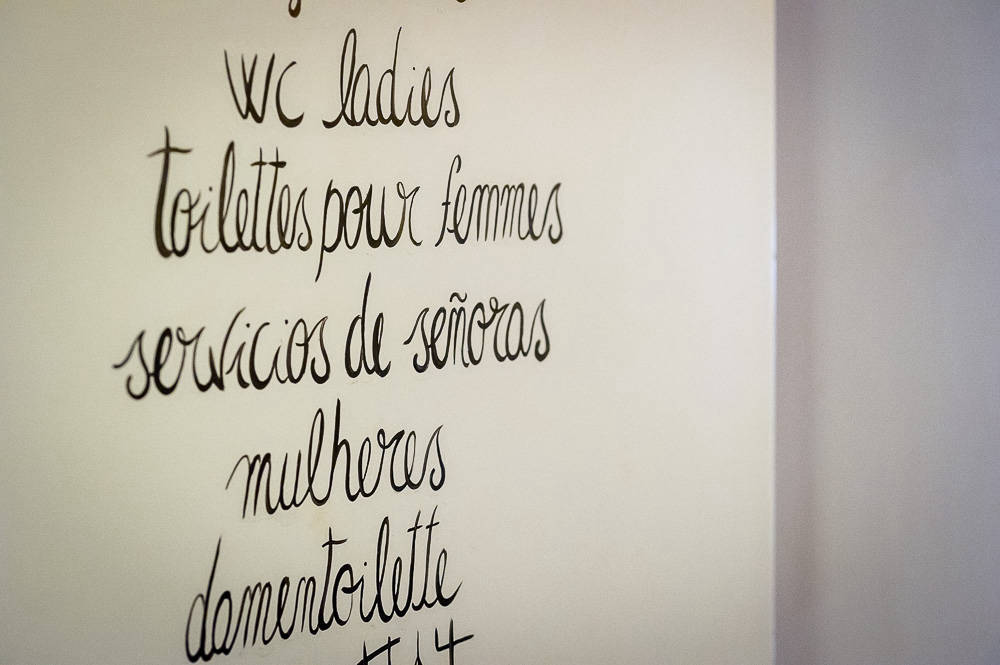 WC ladies
toilettes pour femmes
servicios de señoras
mulheres
damentoilette